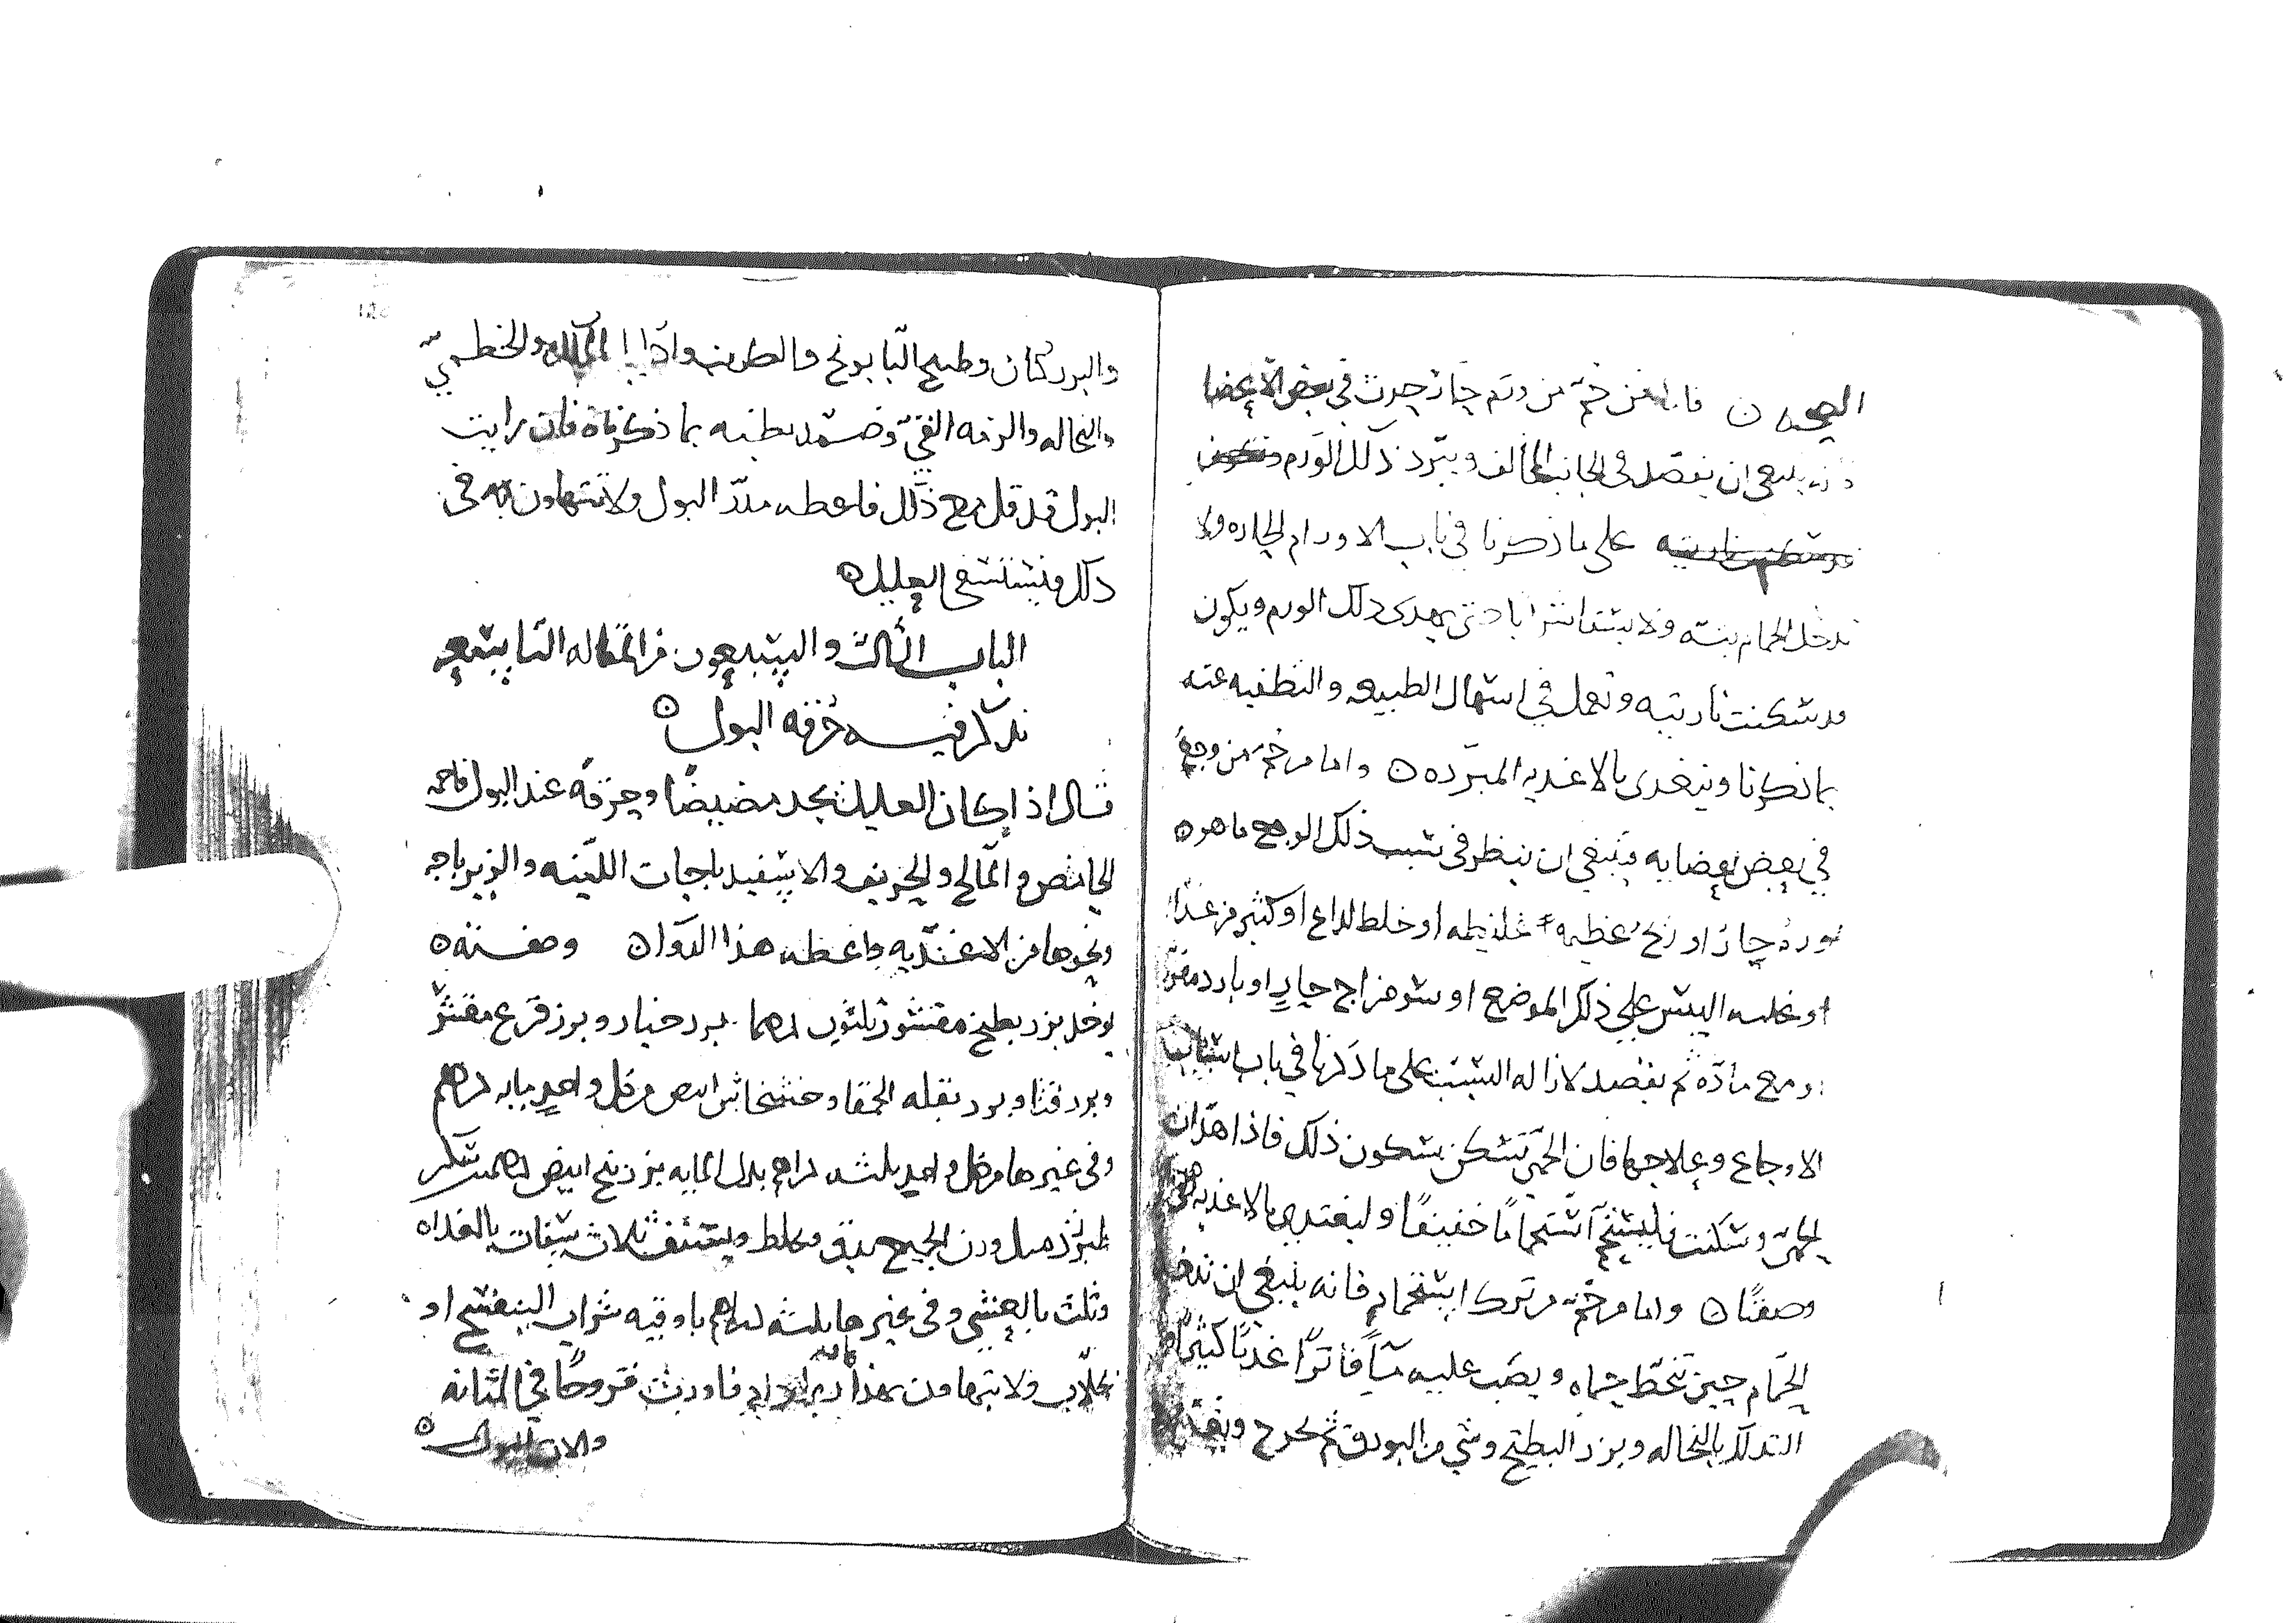 الصحه ن فاما من حُمّ من ورم حار حدث في بعض الاعضا
فانه ينبغي ان يفصد في الجانب المخالف ويبرد ذلك الورم
على ما ذكرنا في باب الاورام الحاره ولا
يدخل الحمام بته ولا يسقا شرابا حتى يهدى ذلك الورم ويكون
قد سكنت ناريته وتعمل في اسهال الطبيعه والتطفيه عنه
بما ذكرنا ويتغدى بالاغديه المبرّده ن واما من حمّ من وجع
في بعض اعضايه فينبغي ان ينظر في سبب ذلك الوجع ما هو ن
حار او ريح عظيمه غليظه او خلط لداع او كثير من غدا
او غلبه اليبس على ذلك الموضع او سو مزاج حارٍ او بارد مفرد
او مع مادّه ثم يقصد لازاله السبب على ما ذكرنا في باب اسباب
الاوجاع وعلاجها فان الحمّى تسكن بسكون ذلك فاذا هدات
الحمّى وسكنت فليستحمّ استحمامًا خفيفًا وليغتدي بالاغديه التي
وصفنا ن واما من حمّ من ترك استحمام فانه ينبغي ان يدخل
الحمّام حين تنحطّ حماه ويصب عليه مآً فاترًا عذبًا كثيرًا
التدلك بالنخاله وبزر البطيخ وشي من البورق ثم يخرج
والبزر كتان وطبيخ البابونج واكليل الملك والخطميّ
والنخاله والرفه القيّ وضمد بطنه بما ذكرناه فان رايت
البول قد قل مع ذلك فاعطه مدرّ البول ولا تتهاون به في
ذلك فيستسقى العليل ن
الباب الثالث والسبعون من المقاله التاسعه
نذكر فيه حُرقه البول ن
قال اذا كان العليل يجد مضيضًا وحرقة عند البول فاحمه
الحامض والمالح والحريف والاسفيدباجات اللينه والزيرباجه
ونحوها من الاغذيه واعطه هذا الدوا ن وصفته ن
يوخذ بزر بطيخ مقشور ثلثون درهما بزر خيار وبزر قرع مقشر
وبزر قثا وبزر بقله الحمقا وخشخاش ابيض من كل واحدٍ مايه درهم
وفي غيرها من كل واحد ثلثه دراهم بدل المايه بزر بنج ابيض درهمين سكر
طبرزد مثل وزن الجميع يدق ويخلط ويستف ثلاث سفات بالغداه
وثلث بالعشي وفي غيرها ثلثه دراهم باوقيه شراب البنفسج او
بجلّاب ولا تتهاون بهذا فاورث قروحًا في المثانه